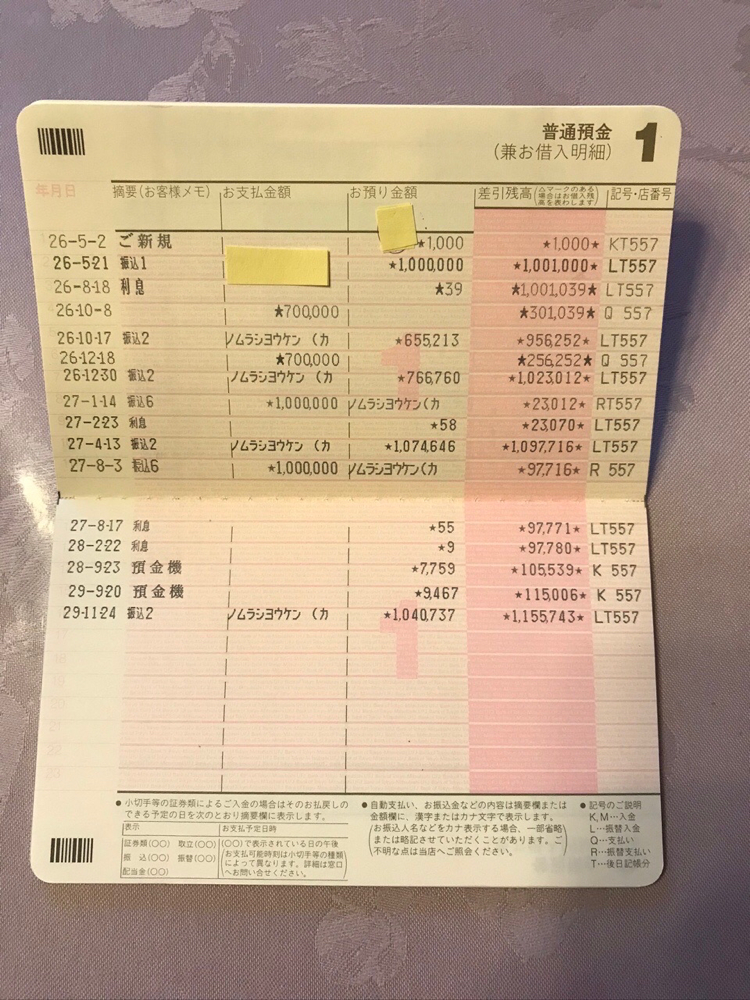 普通預金 1
(兼お借入明細)
年月日 摘要(お客様メモ) お支払金額 お預り金額 差引残高(△マークのある場合はお借入残高を表わします) 記号・店番号
26-5-2 ご新規 ★1,000 ★1,000★ KT557
26-5-21 振込1 ★1,000,000 ★1,001,000★ LT557
26-8-18 利息 ★39 ★1,001,039★ LT557
26-10-8 ★700,000 ★301,039★ Q 557
26-10-17 振込2 ノムラシヨウケン (カ ★655,213 ★956,252★ LT557
26-12-18 ★700,000 ★256,252★ Q 557
26-12-30 振込2 ノムラシヨウケン (カ ★766,760 ★1,023,012★ LT557
27-1-14 振込6 ★1,000,000 ノムラシヨウケン(カ ★23,012★ RT557
27-2-23 利息 ★58 ★23,070★ LT557
27-4-13 振込2 ノムラシヨウケン (カ ★1,074,646 ★1,097,716★ LT557
27-8-3 振込6 ★1,000,000 ノムラシヨウケン(カ ★97,716★ R 557
27-8-17 利息 ★55 ★97,771★ LT557
28-2-22 利息 ★9 ★97,780★ LT557
28-9-23 預金機 ★7,759 ★105,539★ K 557
29-9-20 預金機 ★9,467 ★115,006★ K 557
29-11-24 振込2 ノムラシヨウケン (カ ★1,040,737 ★1,155,743★ LT557
●小切手等の証券類によるご入金の場合はそのお払戻しの
できる予定の日を次のとおり摘要欄に表示します。
表示 お支払予定日時
証券類(〇〇) 取立(〇〇) (〇〇)で表示されている日の午後
振 込(〇〇) 振替(〇〇) お支払可能時刻は小切手等の種類
配当金(〇〇) によって異なります。詳細は窓口
へお問い合せください。
●自動支払い、お振込金などの内容は摘要欄または
金額欄に、漢字またはカナ文字で表示します。
(お振込人名などをカナ表示する場合、一部省略
または略記させていただくことがあります。ご
不明な点は当店へご照会ください。)
●記号のご説明
K,M…入金
L…振替入金
Q…支払い
R…振替支払い
T…後日記帳分